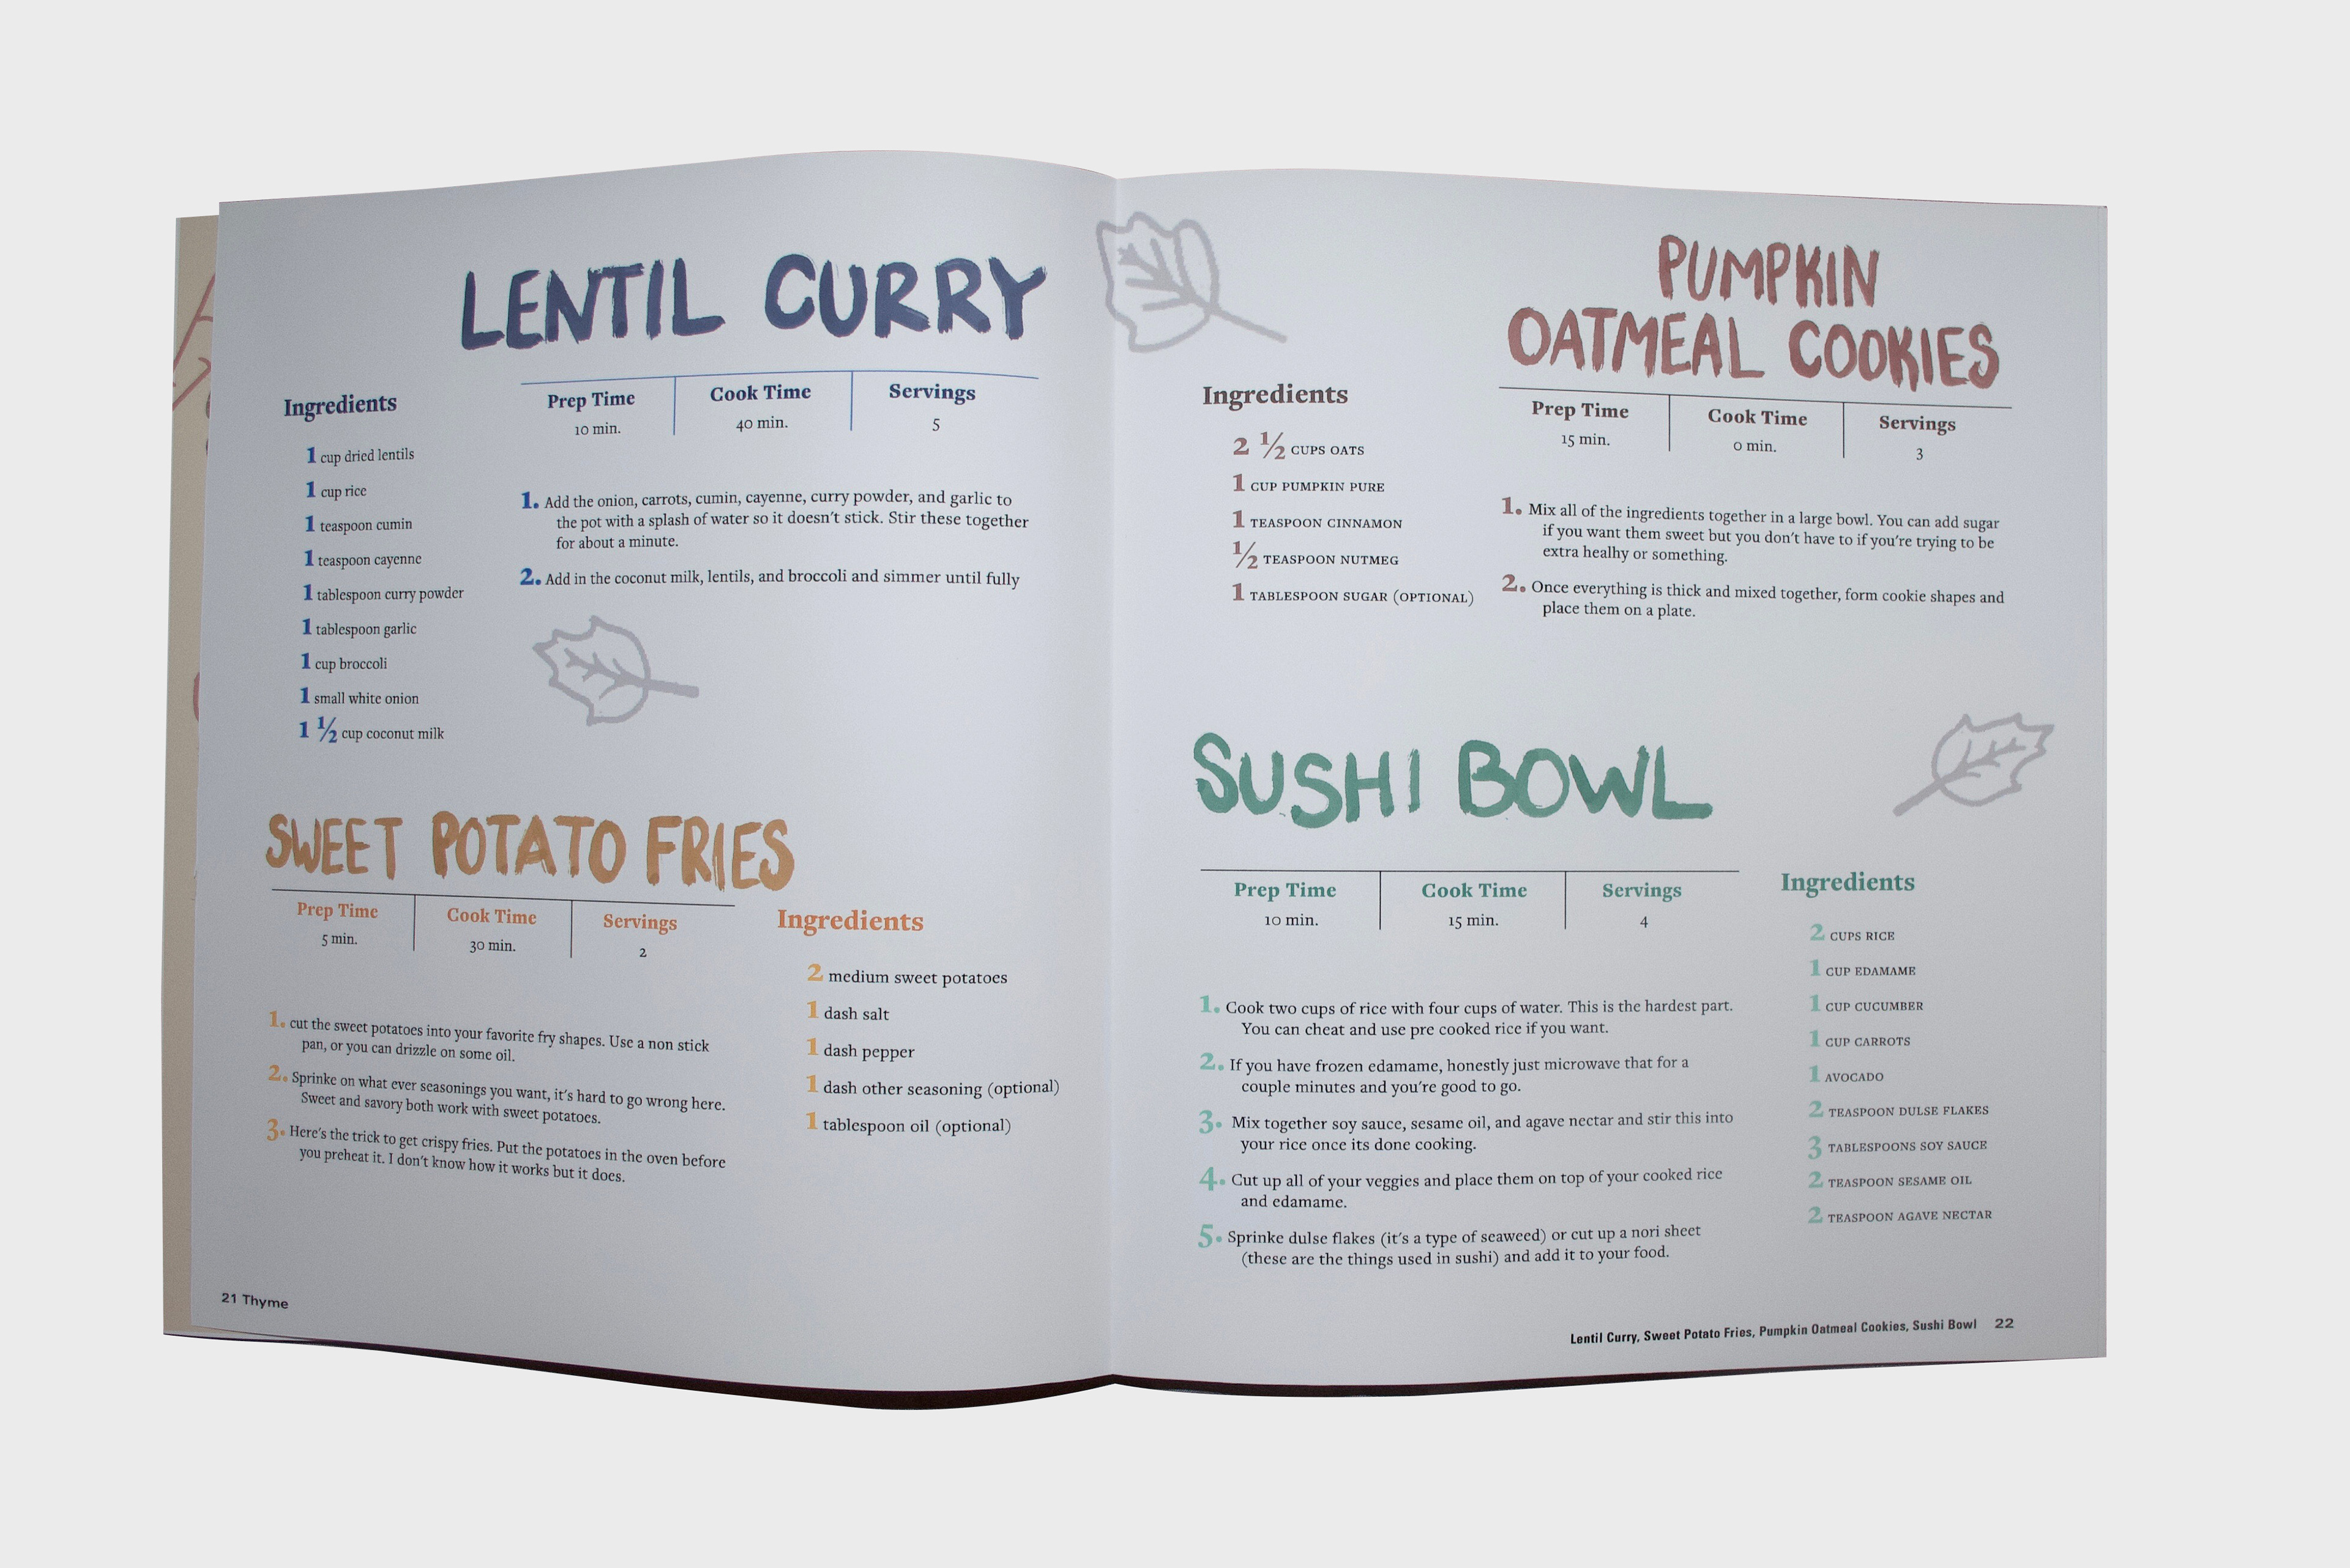 LENTIL CURRY
Ingredients
1 cup dried lentils
1 cup rice
1 teaspoon cumin
1 teaspoon cayenne
1 tablespoon curry powder
1 tablespoon garlic
1 cup broccoli
1 small white onion
1 ½ cup coconut milk
Prep Time Cook Time Servings
10 min. 40 min. 5
1. Add the onion, carrots, cumin, cayenne, curry powder, and garlic to
the pot with a splash of water so it doesn't stick. Stir these together
for about a minute.
2. Add in the coconut milk, lentils, and broccoli and simmer until fully
SWEET POTATO FRIES
Prep Time Cook Time Servings
5 min. 30 min. 2
1. cut the sweet potatoes into your favorite fry shapes. Use a non stick
pan, or you can drizzle on some oil.
2. Sprinke on what ever seasonings you want, it's hard to go wrong here.
Sweet and savory both work with sweet potatoes.
3. Here's the trick to get crispy fries. Put the potatoes in the oven before
you preheat it. I don't know how it works but it does.
Ingredients
2 medium sweet potatoes
1 dash salt
1 dash pepper
1 dash other seasoning (optional)
1 tablespoon oil (optional)
21 Thyme
PUMPKIN
OATMEAL COOKIES
Ingredients
2 ½ CUPS OATS
1 CUP PUMPKIN PURE
1 TEASPOON CINNAMON
½ TEASPOON NUTMEG
1 TABLESPOON SUGAR (OPTIONAL)
Prep Time Cook Time Servings
15 min. 0 min. 3
1. Mix all of the ingredients together in a large bowl. You can add sugar
if you want them sweet but you don't have to if you're trying to be
extra healhy or something.
2. Once everything is thick and mixed together, form cookie shapes and
place them on a plate.
SUSHI BOWL
Prep Time Cook Time Servings
10 min. 15 min. 4
1. Cook two cups of rice with four cups of water. This is the hardest part.
You can cheat and use pre cooked rice if you want.
2. If you have frozen edamame, honestly just microwave that for a
couple minutes and you're good to go.
3. Mix together soy sauce, sesame oil, and agave nectar and stir this into
your rice once its done cooking.
4. Cut up all of your veggies and place them on top of your cooked rice
and edamame.
5. Sprinke dulse flakes (it's a type of seaweed) or cut up a nori sheet
(these are the things used in sushi) and add it to your food.
Ingredients
2 CUPS RICE
1 CUP EDAMAME
1 CUP CUCUMBER
1 CUP CARROTS
1 AVOCADO
2 TEASPOON DULSE FLAKES
3 TABLESPOONS SOY SAUCE
2 TEASPOON SESAME OIL
2 TEASPOON AGAVE NECTAR
Lentil Curry, Sweet Potato Fries, Pumpkin Oatmeal Cookies, Sushi Bowl 22